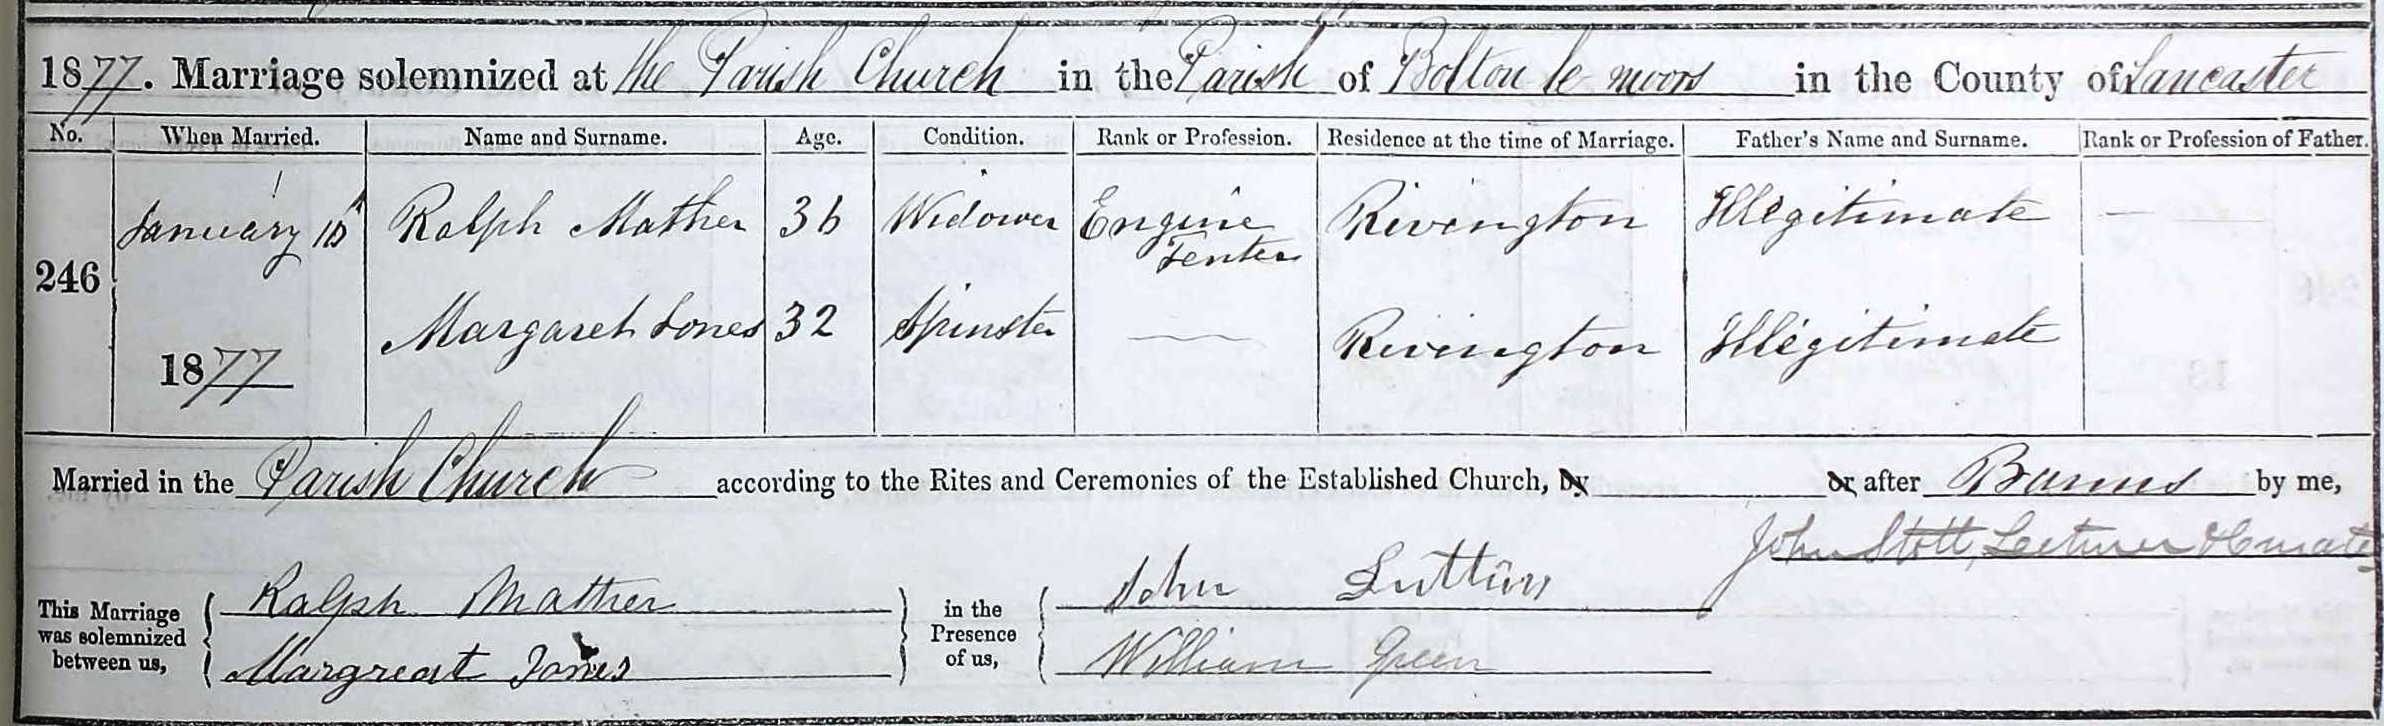 1877. Marriage solemnized at the Parish Church in the Parish of Bolton le moors in the County of Lancaster
No. When Married. Name and Surname. Age. Condition. Rank or Profession. Residence at the time of Marriage. Father's Name and Surname. Rank or Profession of Father.
246 January Ralph Mather 36 Widower Engine Tenter Rivington Illegitimate —
1877 Margaret Jones 32 Spinster — Rivington Illegitimate
Married in the Parish Church according to the Rites and Ceremonies of the Established Church, by or after Banns by me,
John Stott, Lecturer & Curate
This Marriage was solemnized between us, Ralph Mather in the Presence of us, John
Margreat Jones William Green